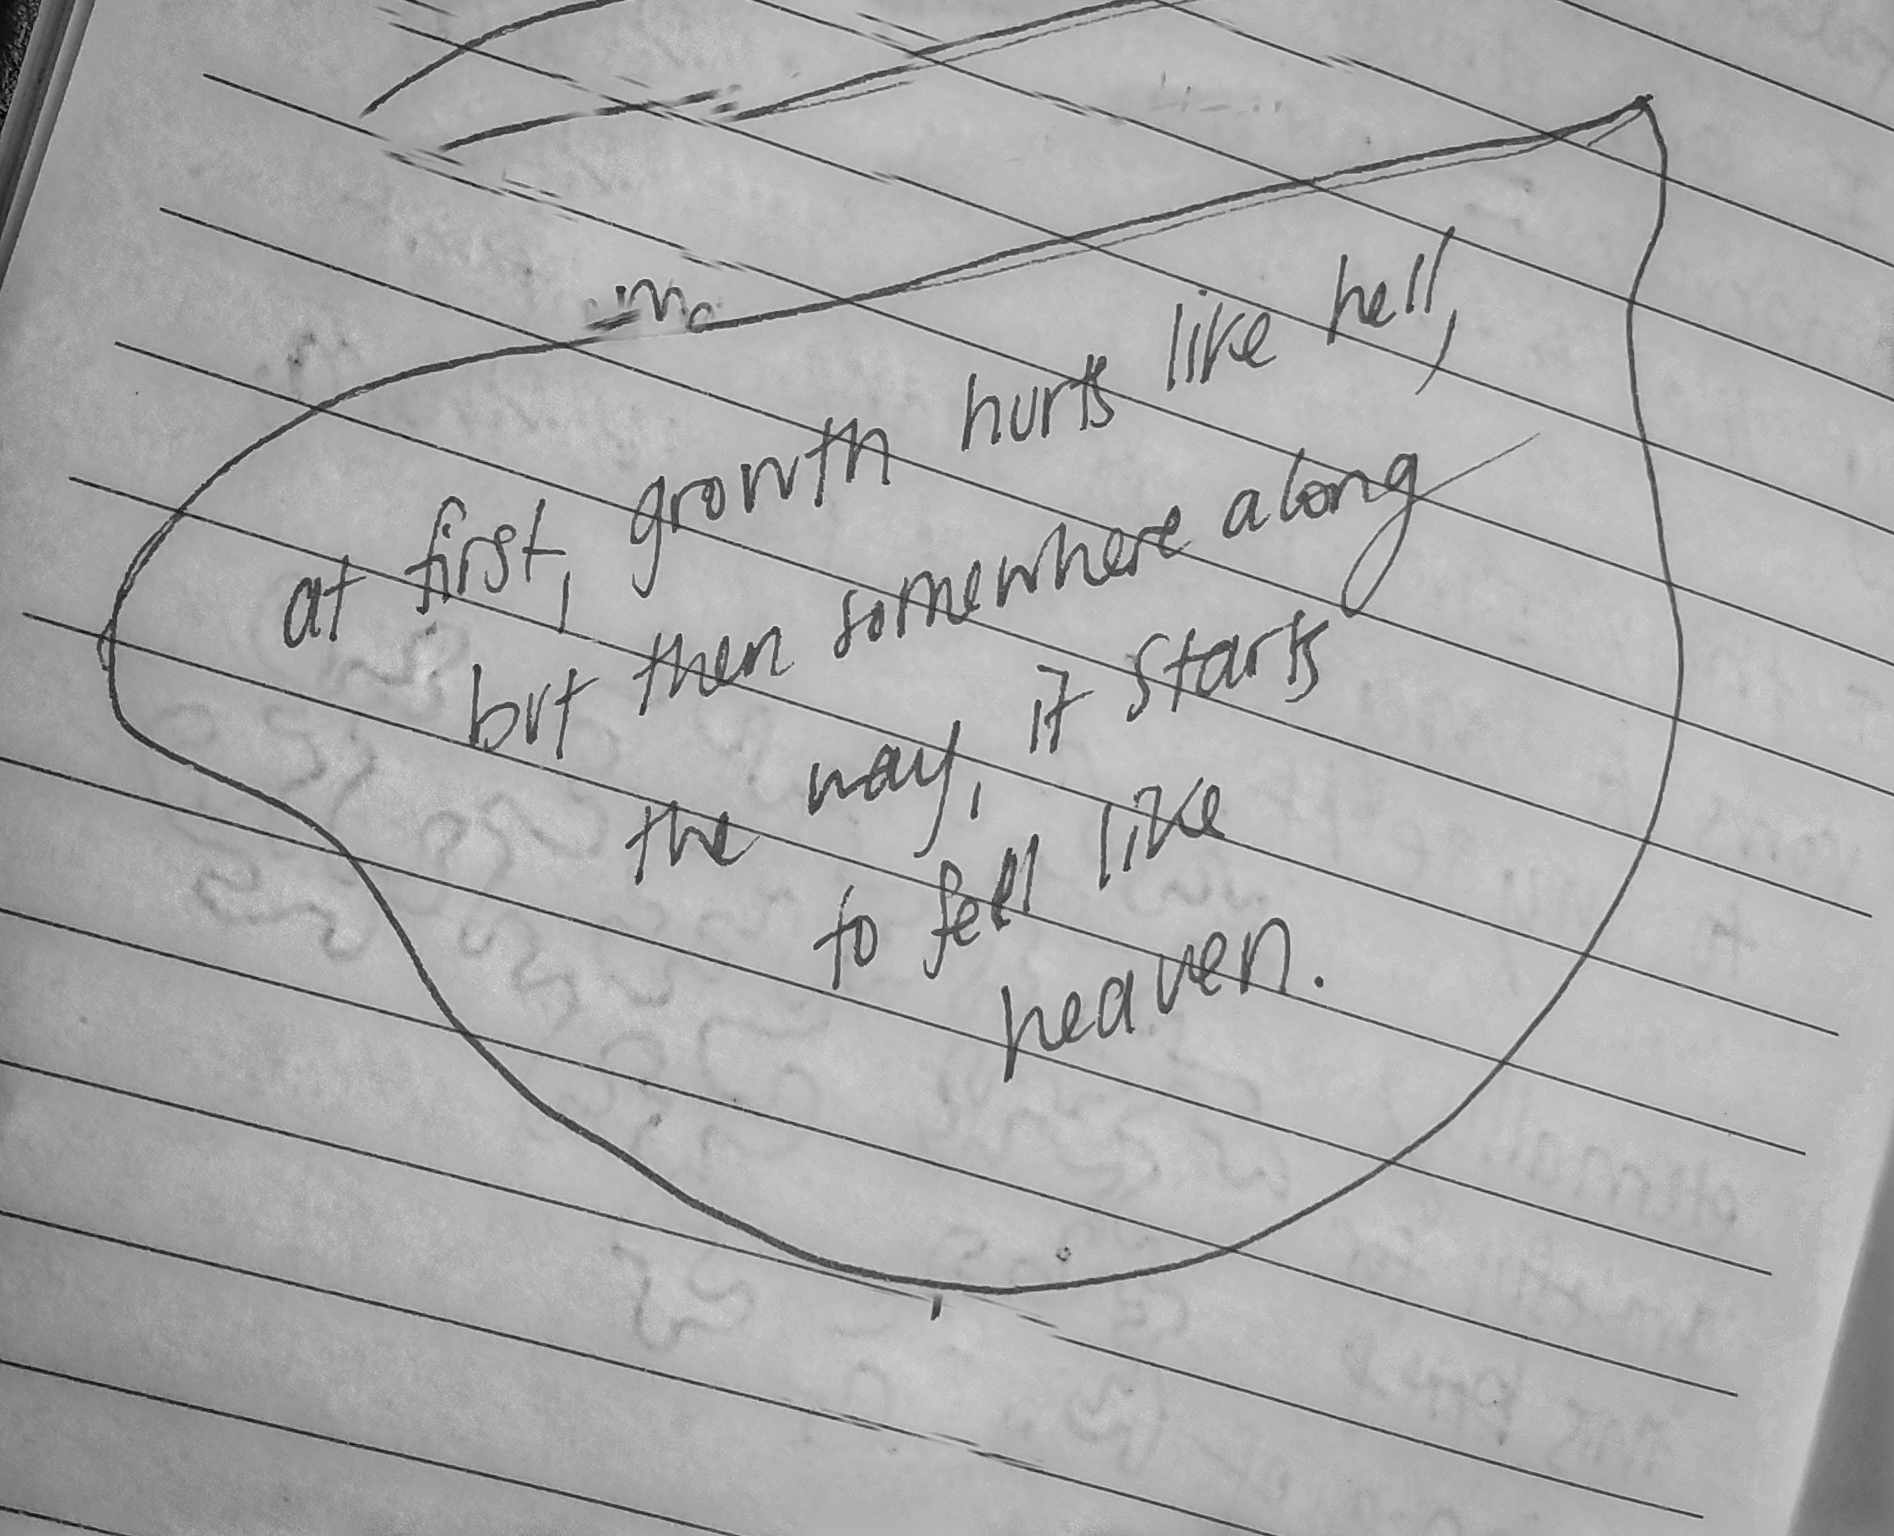 at first, growth hurts like hell,
but then somewhere along
the way, it starts
to feel like
heaven.